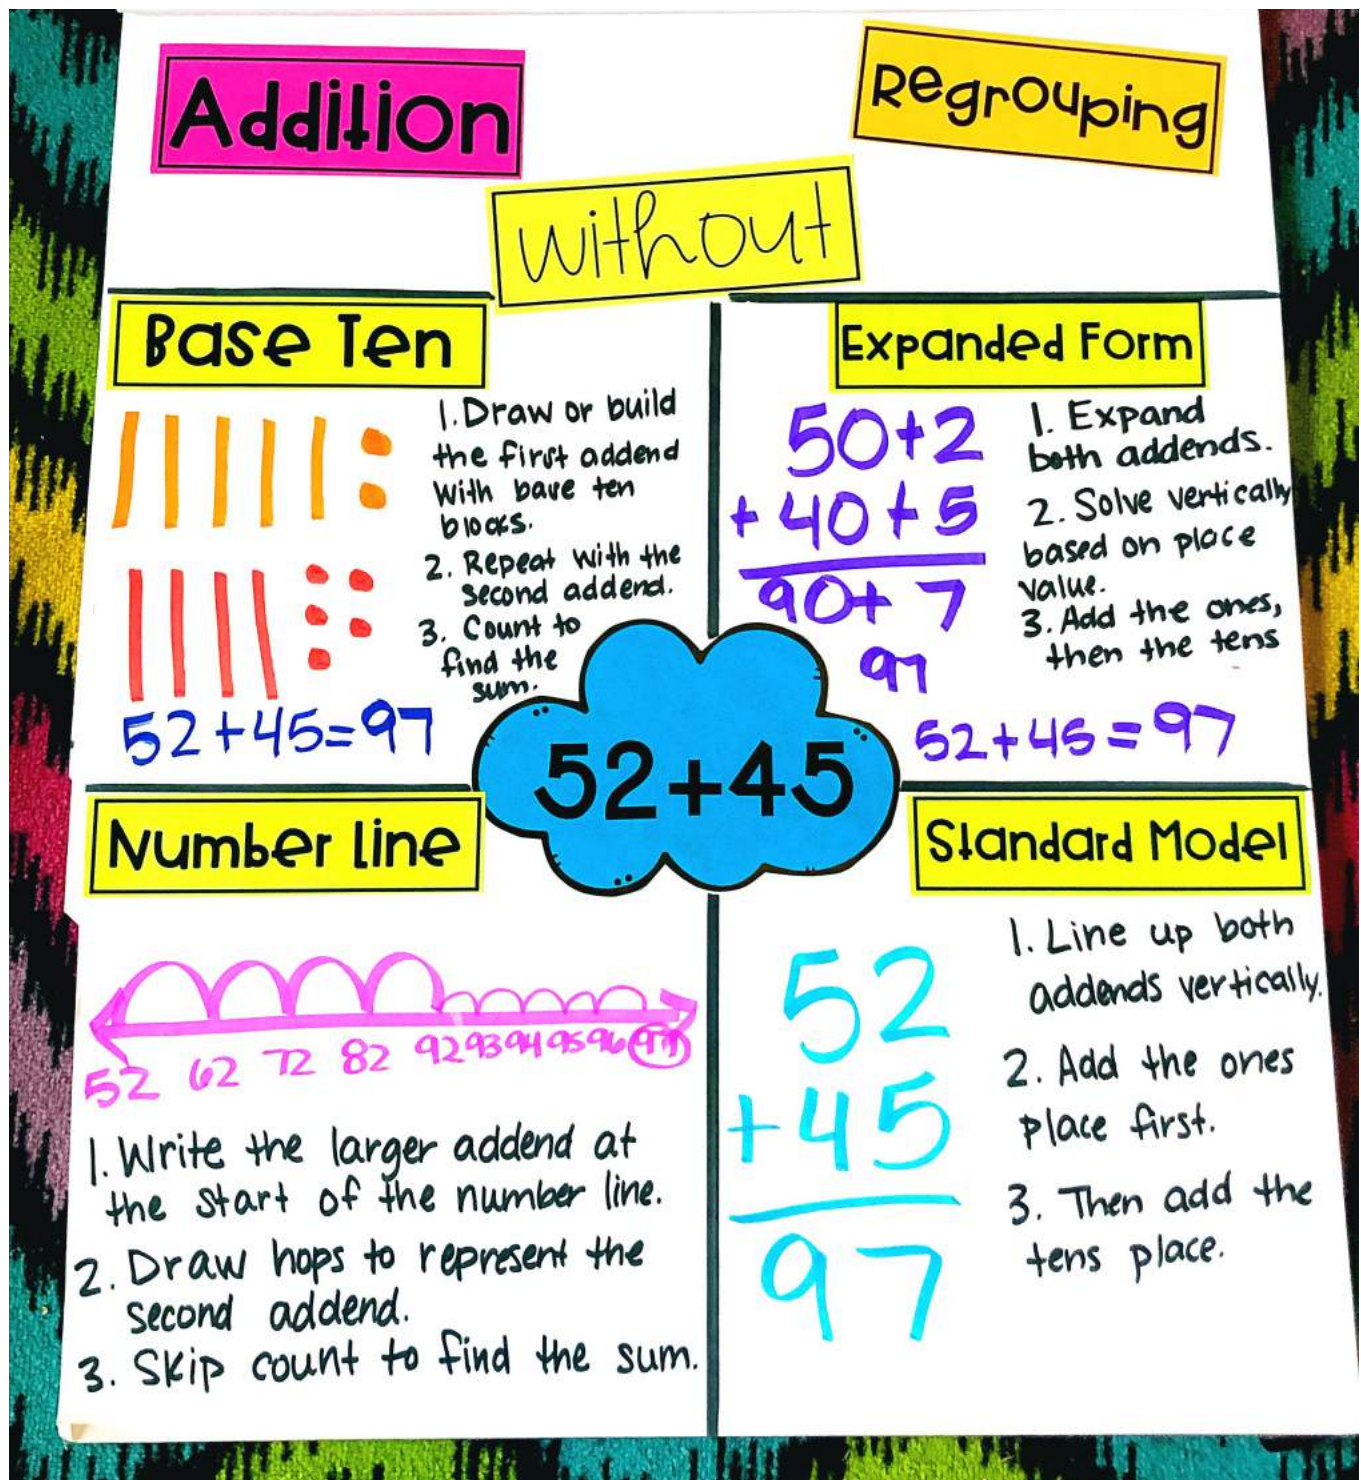 Addition
Regrouping
without
Base Ten
1. Draw or build
the first addend
with base ten
blocks.
2. Repeat with the
second addend.
3. Count to
find the
sum.
52+45=97
Expanded Form
50+2
+40+5
90+7
97
1. Expand
both addends.
2. Solve vertically
based on place
value.
3. Add the ones,
then the tens
52+45=97
52+45
Number line
52 62 72 82 92 93 94 95 96 97
1. Write the larger addend at
the start of the number line.
2. Draw hops to represent the
second addend.
3. Skip count to find the sum.
Standard Model
52
+45
97
1. Line up both
addends vertically.
2. Add the ones
place first.
3. Then add the
tens place.